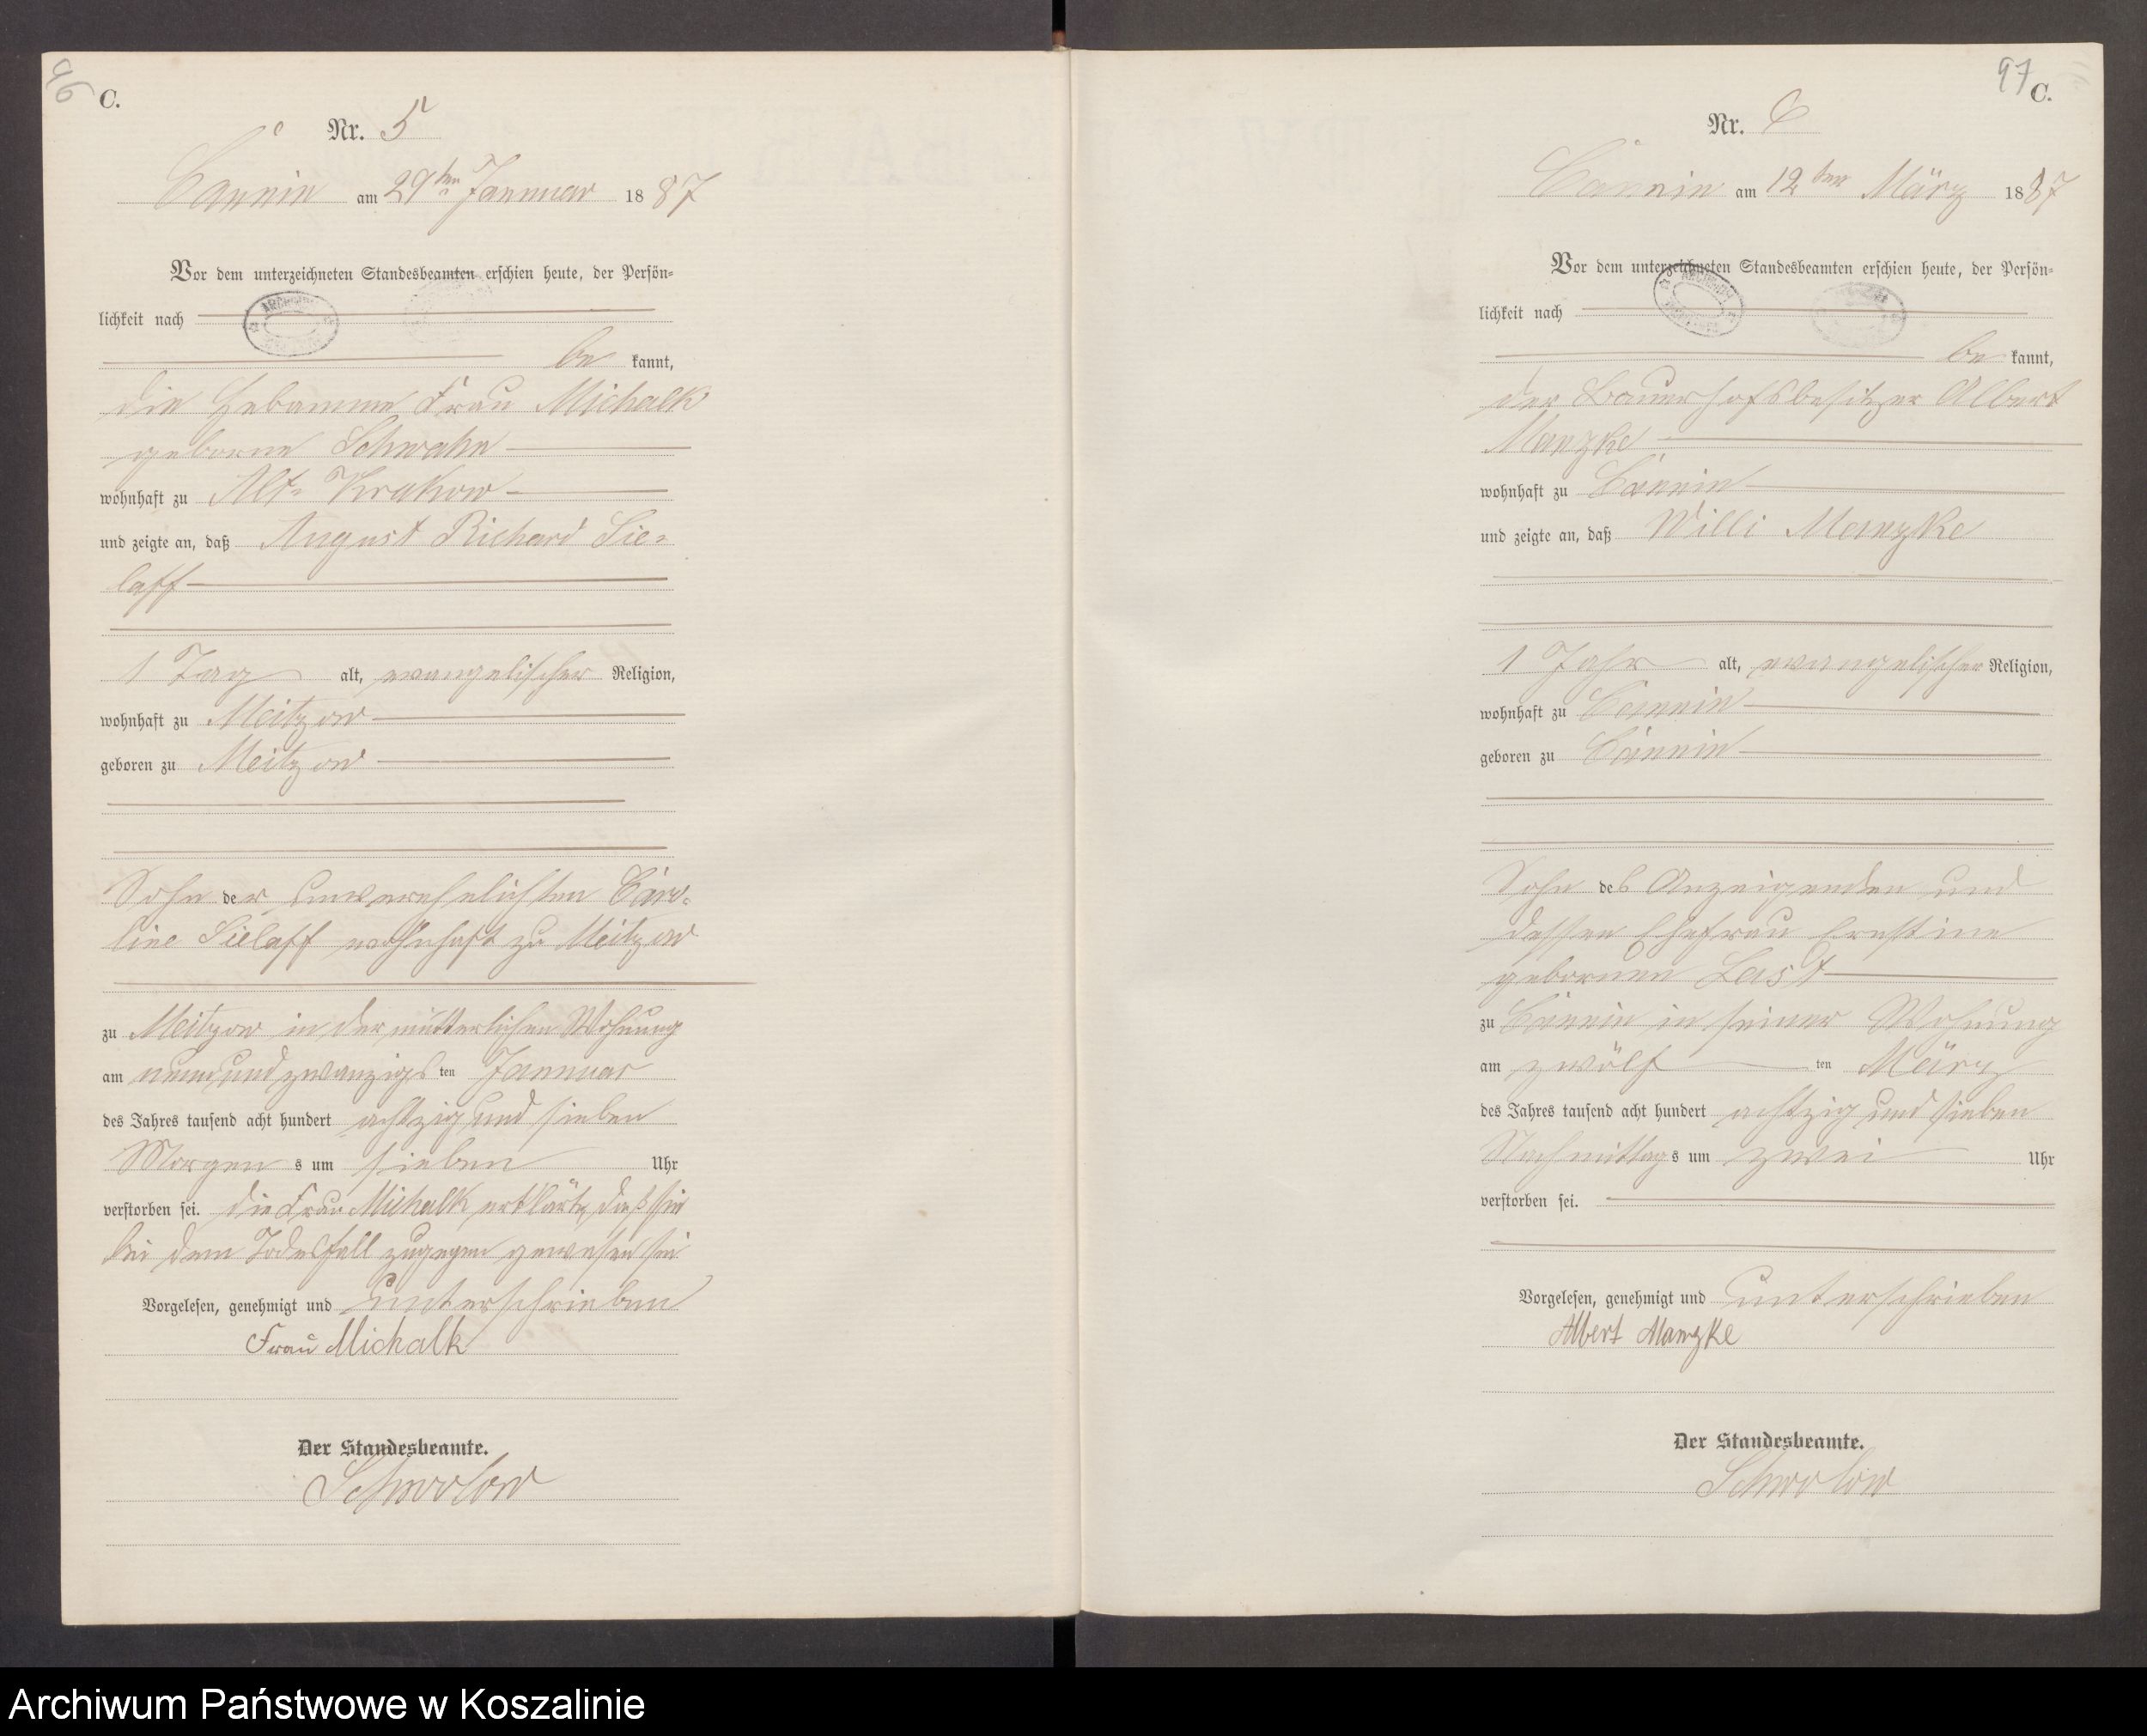 96
C.
Nr. 5
Cannin am 29ten Januar 1887
Vor dem unterzeichneten Standesbeamten erschien heute, der Persön-
lichkeit nach
be kannt,
die Hebamme Frau Michalk
geborne Schwahn
wohnhaft zu Alt-Krakow
und zeigte an, daß August Richard Sie-
laff
1 Tag alt, evangelischer Religion,
wohnhaft zu Meitzow
geboren zu Meitzow
Sohn der unverehelichten Caro-
line Sielaff wohnhaft zu Meitzow
zu Meitzow in der mütterlichen Wohnung
am neunundzwanzigsten Januar
des Jahres tausend acht hundert achtzig und sieben
Morgens um sieben Uhr
verstorben sei. Die Frau Michalk erklärte, daß sie
bei dem Todesfall zugegen gewesen sei
Vorgelesen, genehmigt und unterschrieben
Frau Michalk
Der Standesbeamte.
97
C.
Nr. 6
Cannin am 12ten März 1887
Vor dem unterzeichneten Standesbeamten erschien heute, der Persön-
lichkeit nach
be kannt,
der Bauerhofsbesitzer Albert
Manzke
wohnhaft zu Cannin
und zeigte an, daß Willi Manzke
1 Jahr alt, evangelischer Religion,
wohnhaft zu Cannin
geboren zu Cannin
Sohn des Anzeigenden und
dessen Ehefrau Ernstine
gebornen Last
zu Cannin in seiner Wohnung
am zwölf ten März
des Jahres tausend acht hundert achtzig und sieben
Nachmittags um zwei Uhr
verstorben sei.
Vorgelesen, genehmigt und unterschrieben
Albert Manzke
Der Standesbeamte.
Archiwum Państwowe w Koszalinie